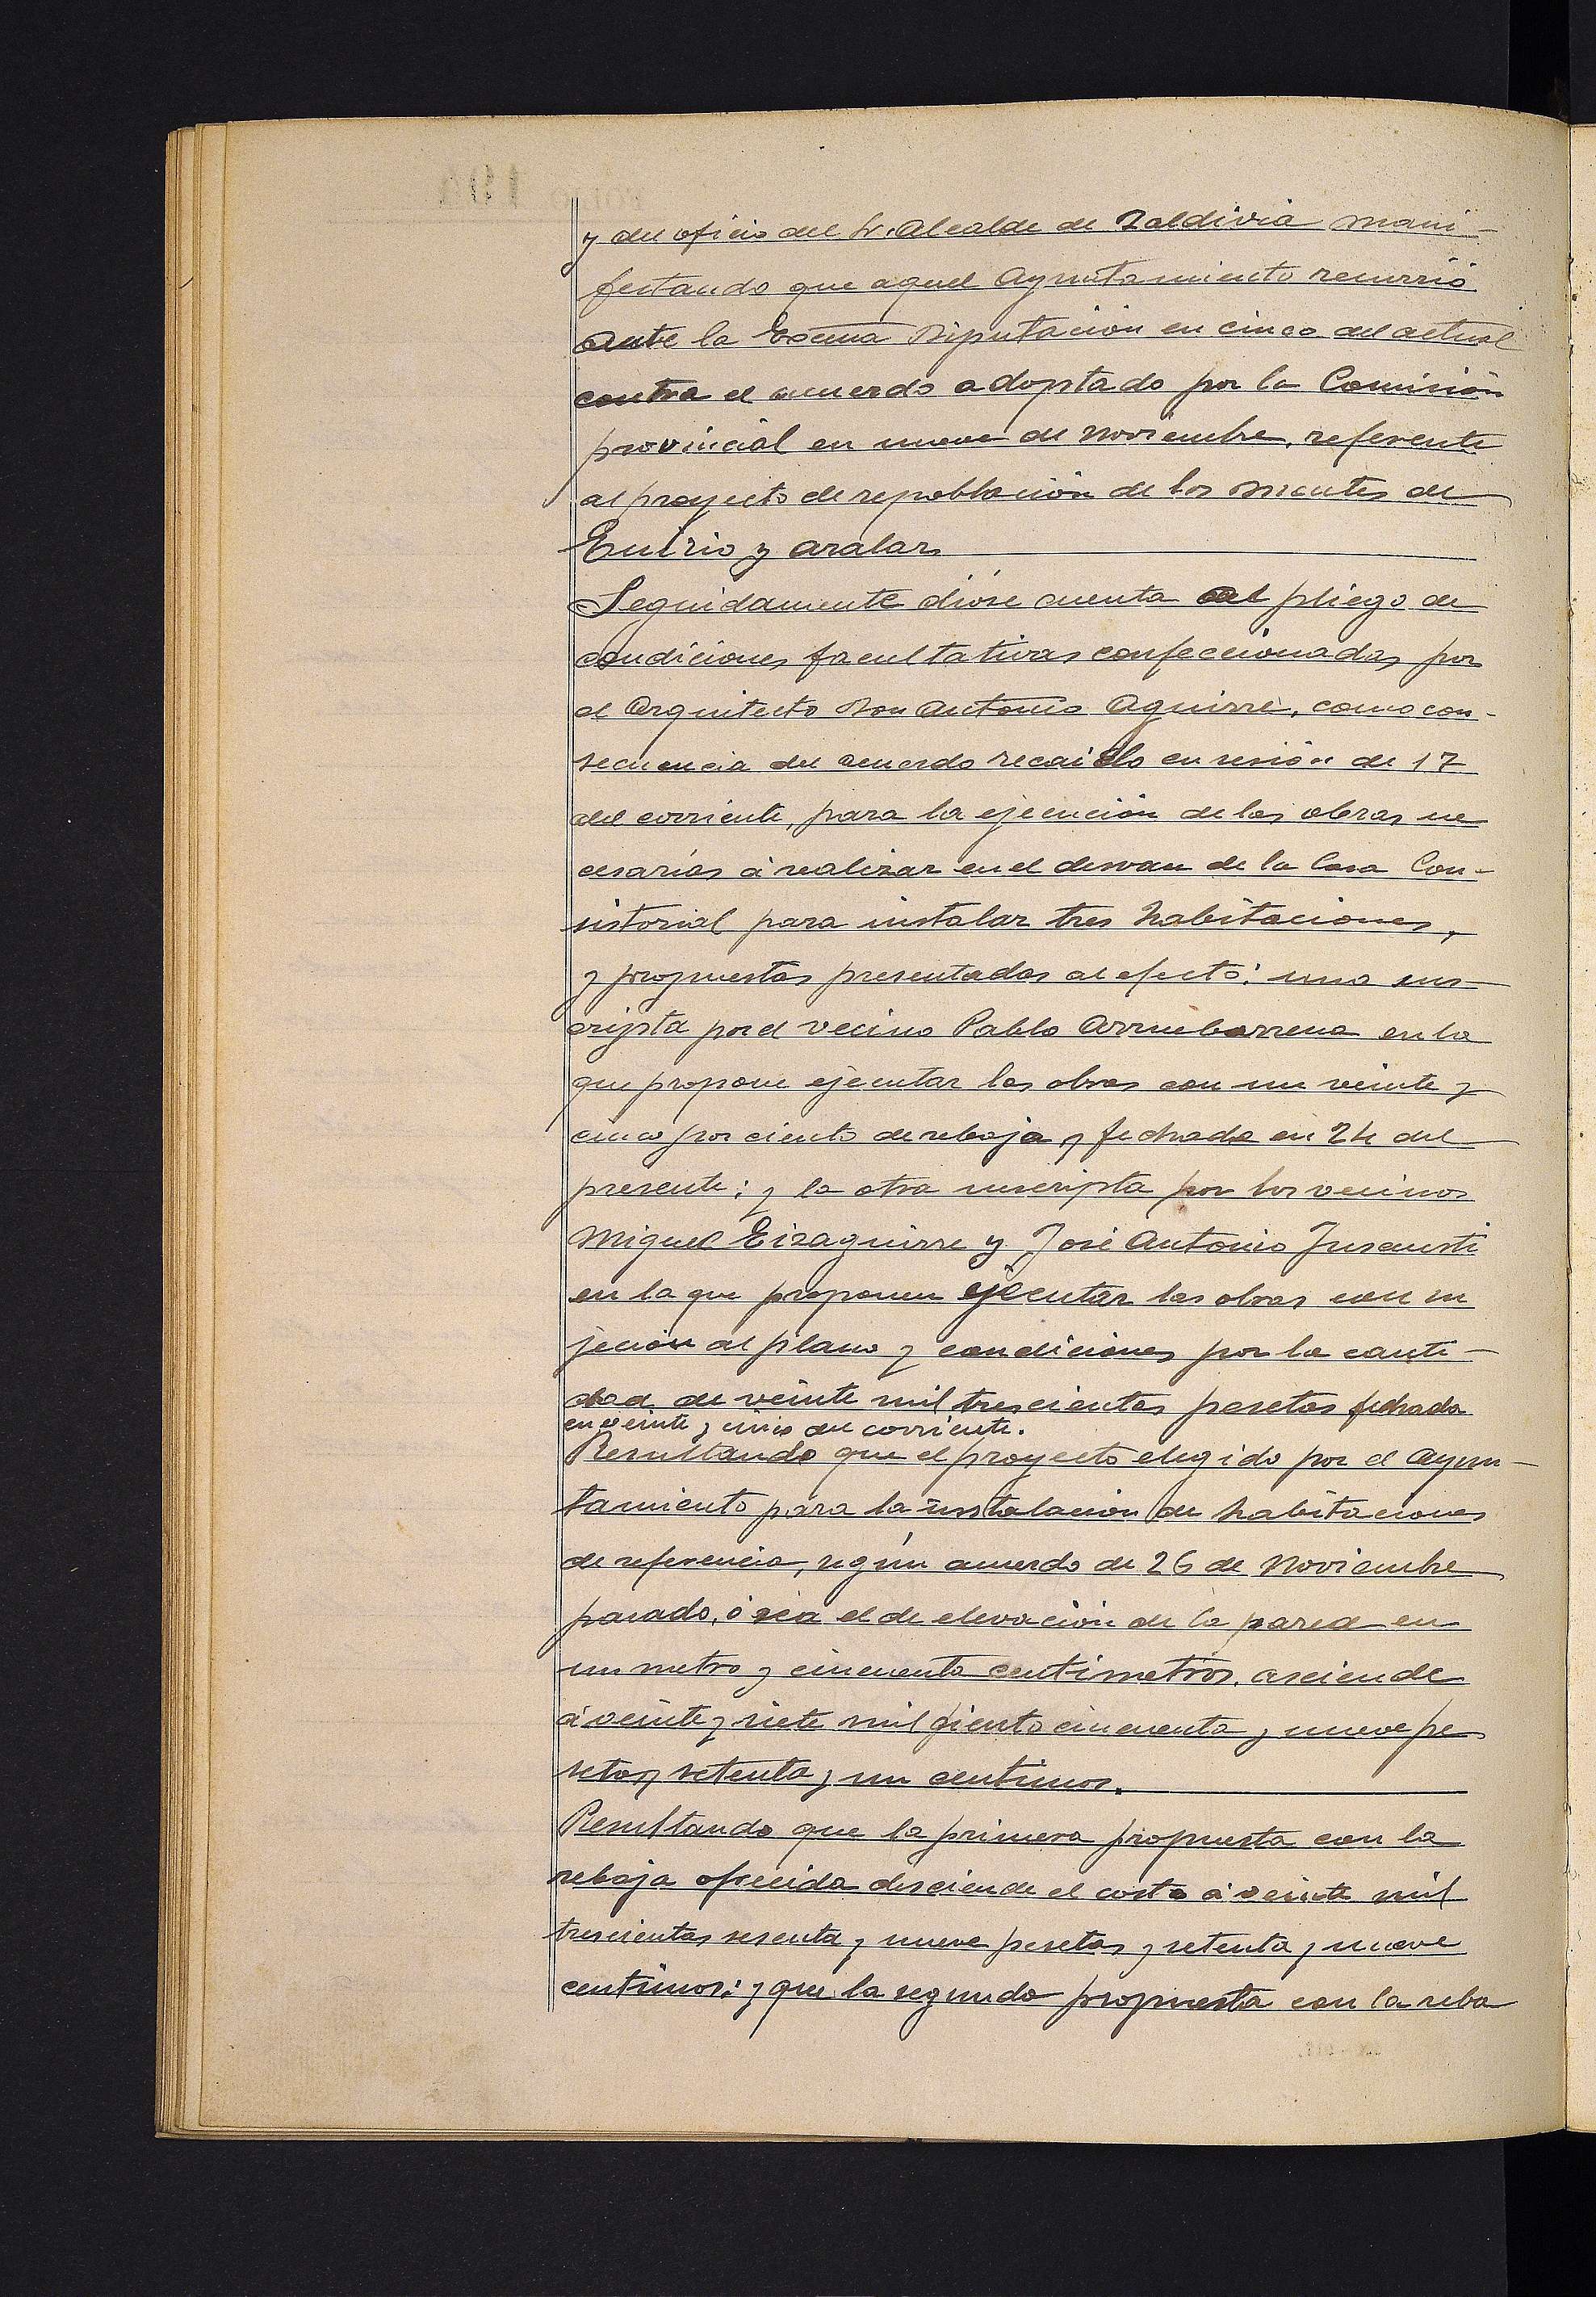 y del oficio del Sr. Alcalde de Zaldivia mani-
festando que aquel Ayuntamiento recurrió
ante la Excma Diputacion en cinco del actual
contra el acuerdo adoptado por la Comisión
provincial en nueve de Noviembre, referente
al proyecto de repoblación de los montes de
Enirio y aralar
Seguidamente dióse cuenta del pliego de
condiciones facultativas confeccionadas por
el Arquitecto Don Antonio Aguirre, como con-
secuencia del acuerdo recaido en sesión de 17
del corriente, para la ejecución de las obras ne
cesarias á realizar en el desvan de la Casa Con-
sistorial para instalar tres habitaciones,
y propuestas presentadas al efecto: una sus-
cripta por el vecino Pablo Arruebarrena en la
que propone ejecutar las obras con un veinte y
cinco por ciento de rebaja y fechada en 24 del
presente; y la otra suscripta por los vecinos
Miguel Eizaguirre y José Antonio
en la que proponen ejecutar las obras con su
jeción al plano y condiciones por la canti-
dad de veinte mil trescientas pesetas fechada
en veinte y cinco del corriente.
Resultando que el proyecto elegido por el Ayun-
tamiento para la instalacion de habitaciones
de referencia, según acuerdo de 26 de Noviembre
pasado, ó sea el de elevación de la pared en
un metro y cincuenta centimetros, asciende
á veinte y siete mil ciento cincuenta y nueve pe
setas y setenta y un centimos.
Resultando que la primera propuesta con la
rebaja ofrecida desciende el costo á veinte mil
trescientas sesenta y nueve pesetas y setenta y nueve
centimos; y que la segunda propuesta con la reba